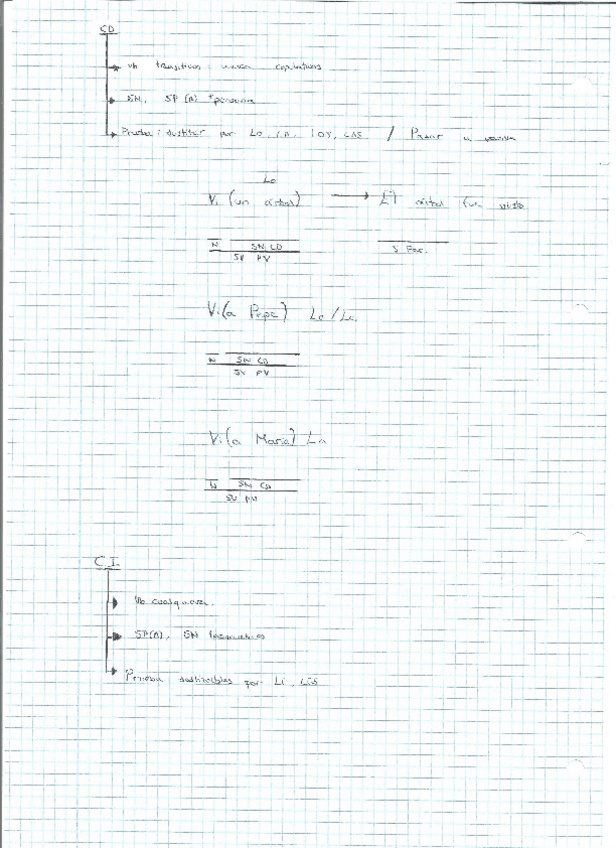 CD
Vb transitivos: nunca copulativos
SN, SP (A) + persona
Prueba: sustituir por Lo, LA, LOS, LAS / Pasar a pasiva
Lo
Vi (un árbol) → El árbol fue visto
N SN CD
SP PV
S Pac.
Vi (a Pepe) Lo / Le
N SN CD
SV PV
Vi (a María) La
N SN CD
SV PV
C.I.
Vb cualquiera.
SP(A), SN
Prueba sustituibles por Le, Les